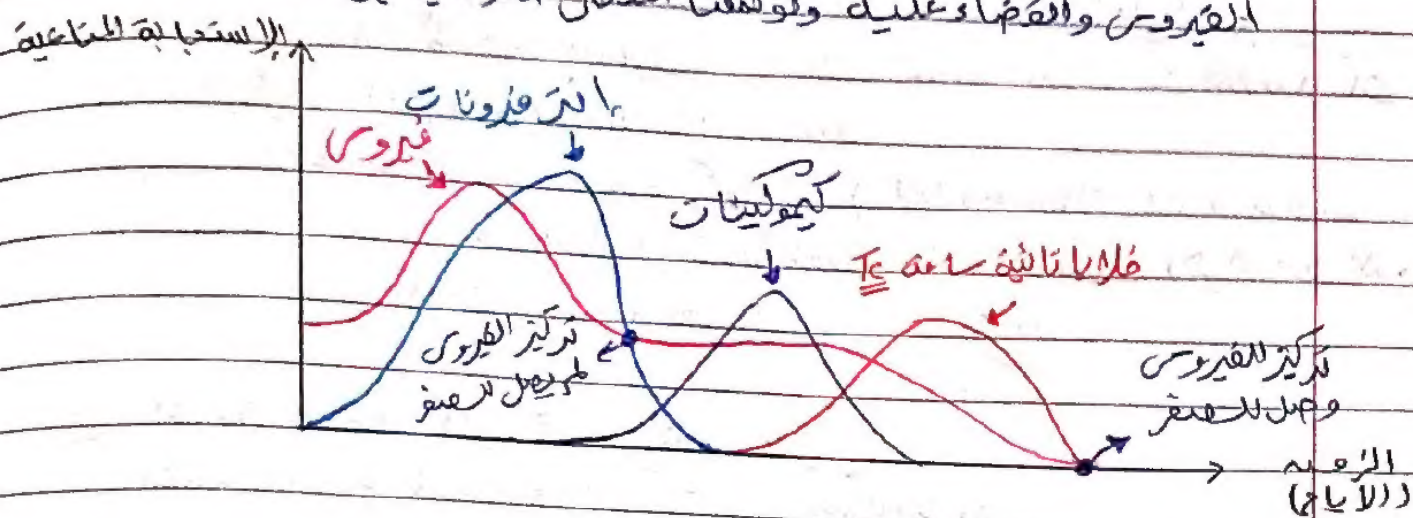 الفيروس والقضاء عليه
الإستجابة المناعية
انترفرونات
فيروس
كيموكينات
خلايا تائية سامة Tc
تركيز الفيروس
لم يصل للصفر
تركيز الفيروس
وصل للصفر
الزمن
(الأيام)